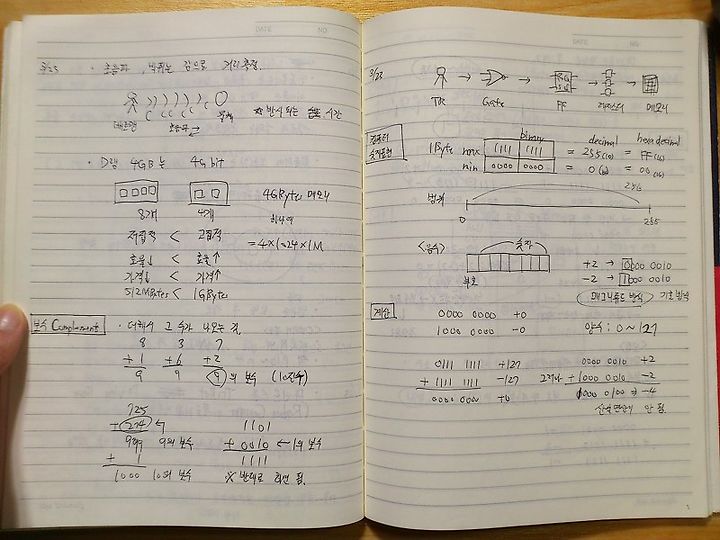 3/25 · 초음파, 박쥐는 감으로 거리측정.
초음파 →
반사되는 시간
· D램 4GB는 4G bit
8개 4개 4GByte 메모리
저집적 < 고집적 = 4×1024×1M
효율↓ < 효율↑
가격↓ < 가격↑
512MBytes < 1GByte
보수 Complement · 더해서 그 수가 나오는 것.
8 3 7
+1 +6 +2
9 9 9의 보수 (10진수)
725
+274
999 9의 보수
+ 1
1000 10의 보수
1101
+0010 ← 1의 보수
1111
※ 반대로 하면 됨.
DATE NO
3/27
TR → Gate → FF → 레지스터 → 메모리
컴퓨터
숫자표현
binary decimal hexa decimal
1Byte max 1111 1111 = 255(10) = FF(16)
min 0000 0000 = 0 = 00(16)
범위 256
0 255
<음수> 숫자
부호
+2 → 0000 0010
-2 → 1000 0010
매그니튜드 방식 기호 방식
계산
0000 0000 +0
1000 0000 -0
양수 : 0 ~ 127
0111 1111 +127
+ 1111 1111 -127
0000 0000 +0
그러나
0000 0010 +2
+ 1000 0010 -2
1000 0100 ⇒ -4
산술연산이 안 됨.